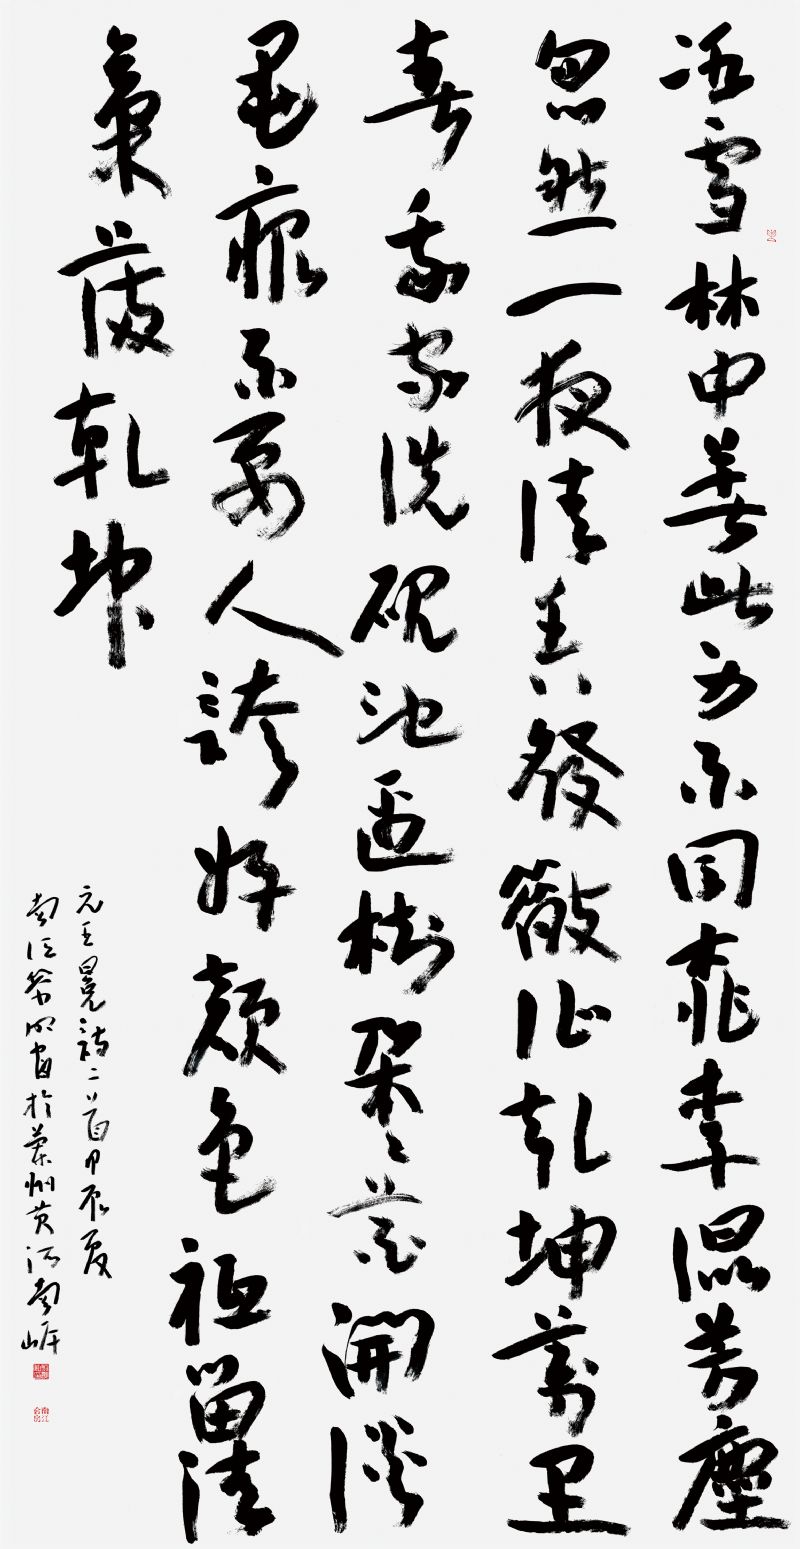 冰雪林中著此身不同桃李混芳塵
忽然一夜清香發散作乾坤萬里
春我家洗硯池邊樹朵朵花開淡
墨痕不要人誇好顏色祇留清
氣滿乾坤
元王冕詩二首甲辰夏
南江明書於蘭州黃河南岸